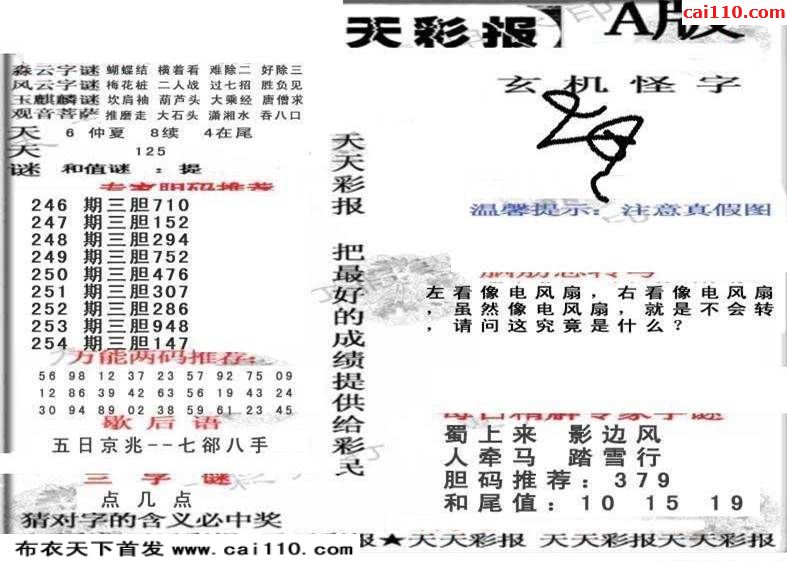 cai110.com
天彩报】A版
淼云字谜 蝴蝶结 横着看 难除二 好除三
风云字谜 梅花桩 二人战 过七招 胜负见
玉麒麟谜 坎肩袖 葫芦头 大乘经 唐僧求
观音菩萨 推磨走 大石头 潇湘水 吞八口
天 6 仲夏 8续 4在尾
天 125
谜 和值谜 : 提
专家胆码推荐
246 期三胆710
247 期三胆152
248 期三胆294
249 期三胆752
250 期三胆476
251 期三胆307
252 期三胆286
253 期三胆948
254 期三胆147
万能两码推荐:
56 98 12 37 23 57 92 75 09
12 86 39 42 63 56 19 43 24
30 94 89 02 38 59 61 23 45
歇后语
五日京兆--七郤八手
三字谜
点几点
猜对字的含义必中奖
布衣天下首发 www.cai110.com
天天彩报 把最好的成绩提供给彩民
玄机怪字
温馨提示: 注意真假图
脑筋急转弯
左看像电风扇，右看像电风扇
，虽然像电风扇，就是不会转
，请问这究竟是什么？
每日精解专家字谜
蜀上来 影边风
人牵马 踏雪行
胆码推荐: 379
和尾值: 10 15 19
报★天天彩报 天天彩报天天彩报